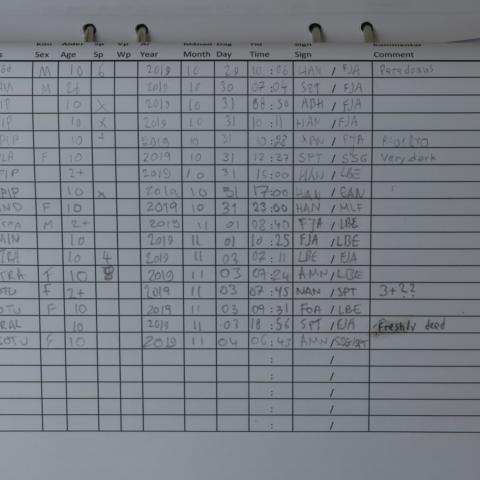 Ålder Sp Vp År Månad Dag Tid Sign Kommentar
Sex Age Sp Wp Year Month Day Time Sign Comment
M 10 6 2019 10 29 10:06 HAN / FJA Paradoxus
M 2+ 2019 10 30 07:04 SPT / FJA
PIP 10 x 2019 10 31 08:50 ABH / FJA
PIP 10 x 2019 10 31 10:11 HAN / FJA
PIP 10 2019 10 31 / FJA
F 10 2019 10 31 12:37 SPT / SSG Very dark
PIP 2+ 2019 10 31 15:00 HAN / LBE
PIP 10 x 2019 10 31 17:00 HAN / CAN
F 10 2019 10 31 23:00 HAN / MLF
M 2+ 2019 11 01 08:40 FJA / LBE
MIN 10 2019 11 01 10:25 FJA / LBE
TRA 10 4 2019 11 03 07:11 LBE / FJA
TRA F 10 2019 11 03 07:24 AMN / LBE
OTU F 2+ 2019 11 03 07:45 NAN / SPT 3+??
OTU F 10 2019 11 03 09:31 FOA / LBE
RAL 10 2019 11 03 18:56 SPT / FJA Freshly dead
OTU F 10 2019 11 04 06:43 AMN / SSG/SPT
: /
: /
: /
: /